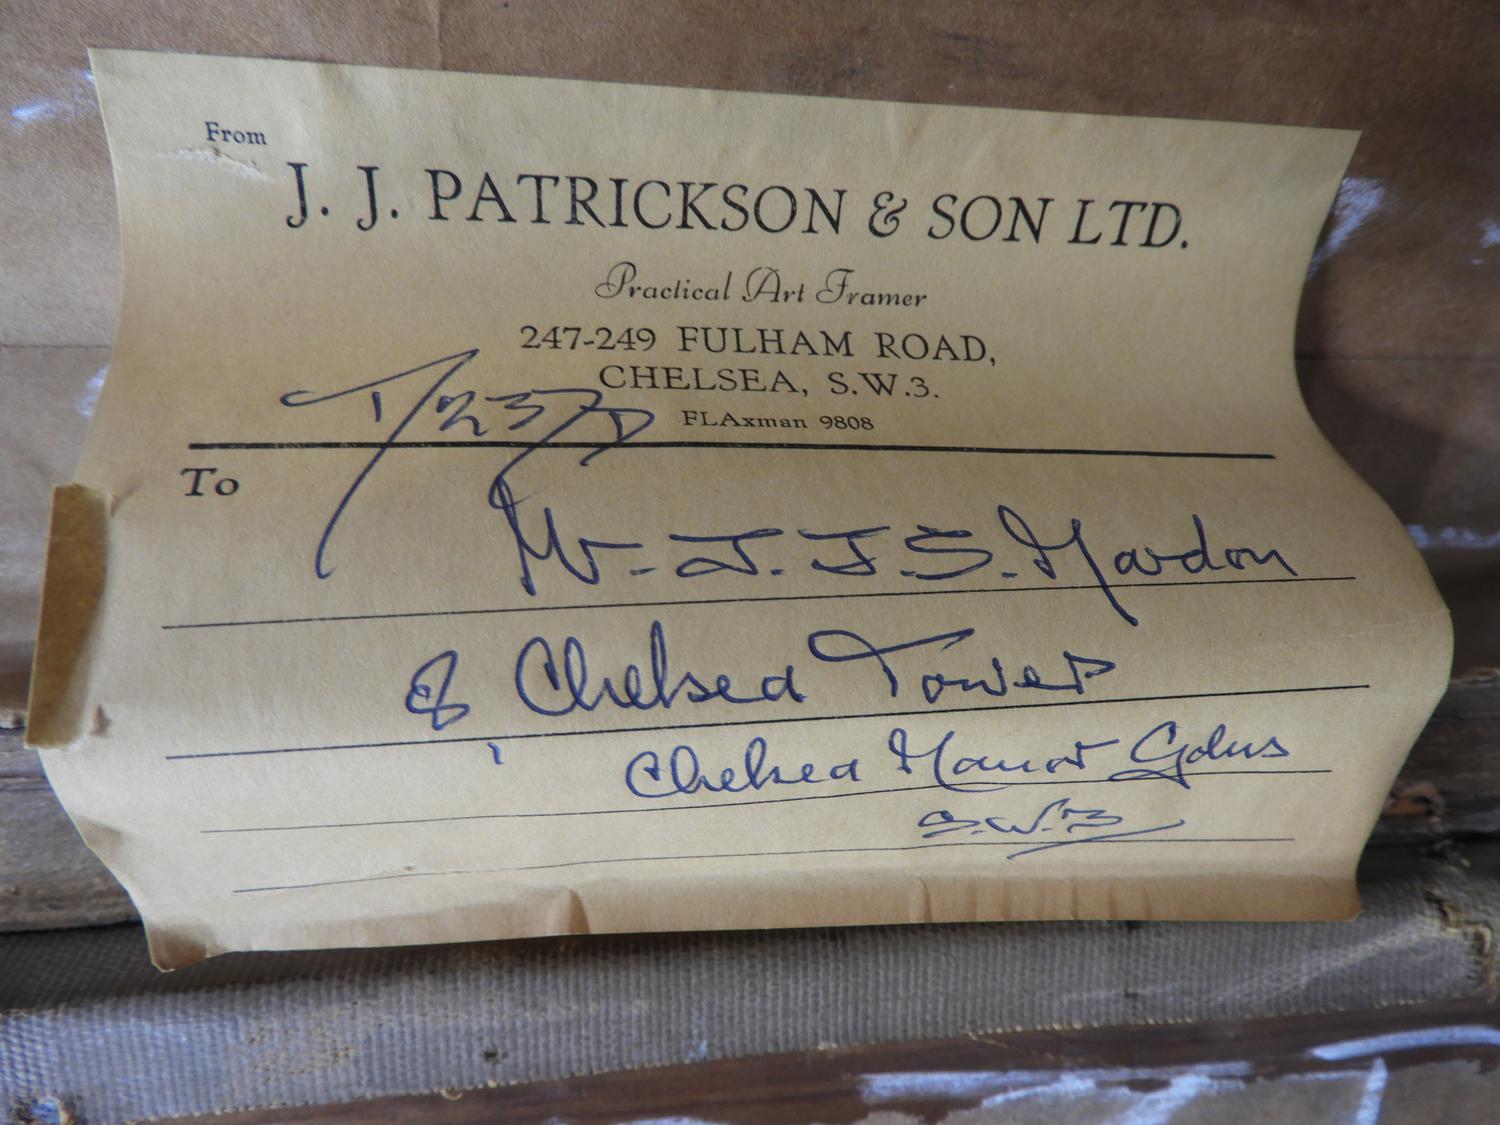 From
J. J. PATRICKSON & SON LTD.
Practical Art Framer
247-249 FULHAM ROAD,
CHELSEA, S.W.3.
FLAxman 9808
To
Mr. J. J. S. Mardon
8 Chelsea Tower
Chelsea Manor Gdns
S.W.3